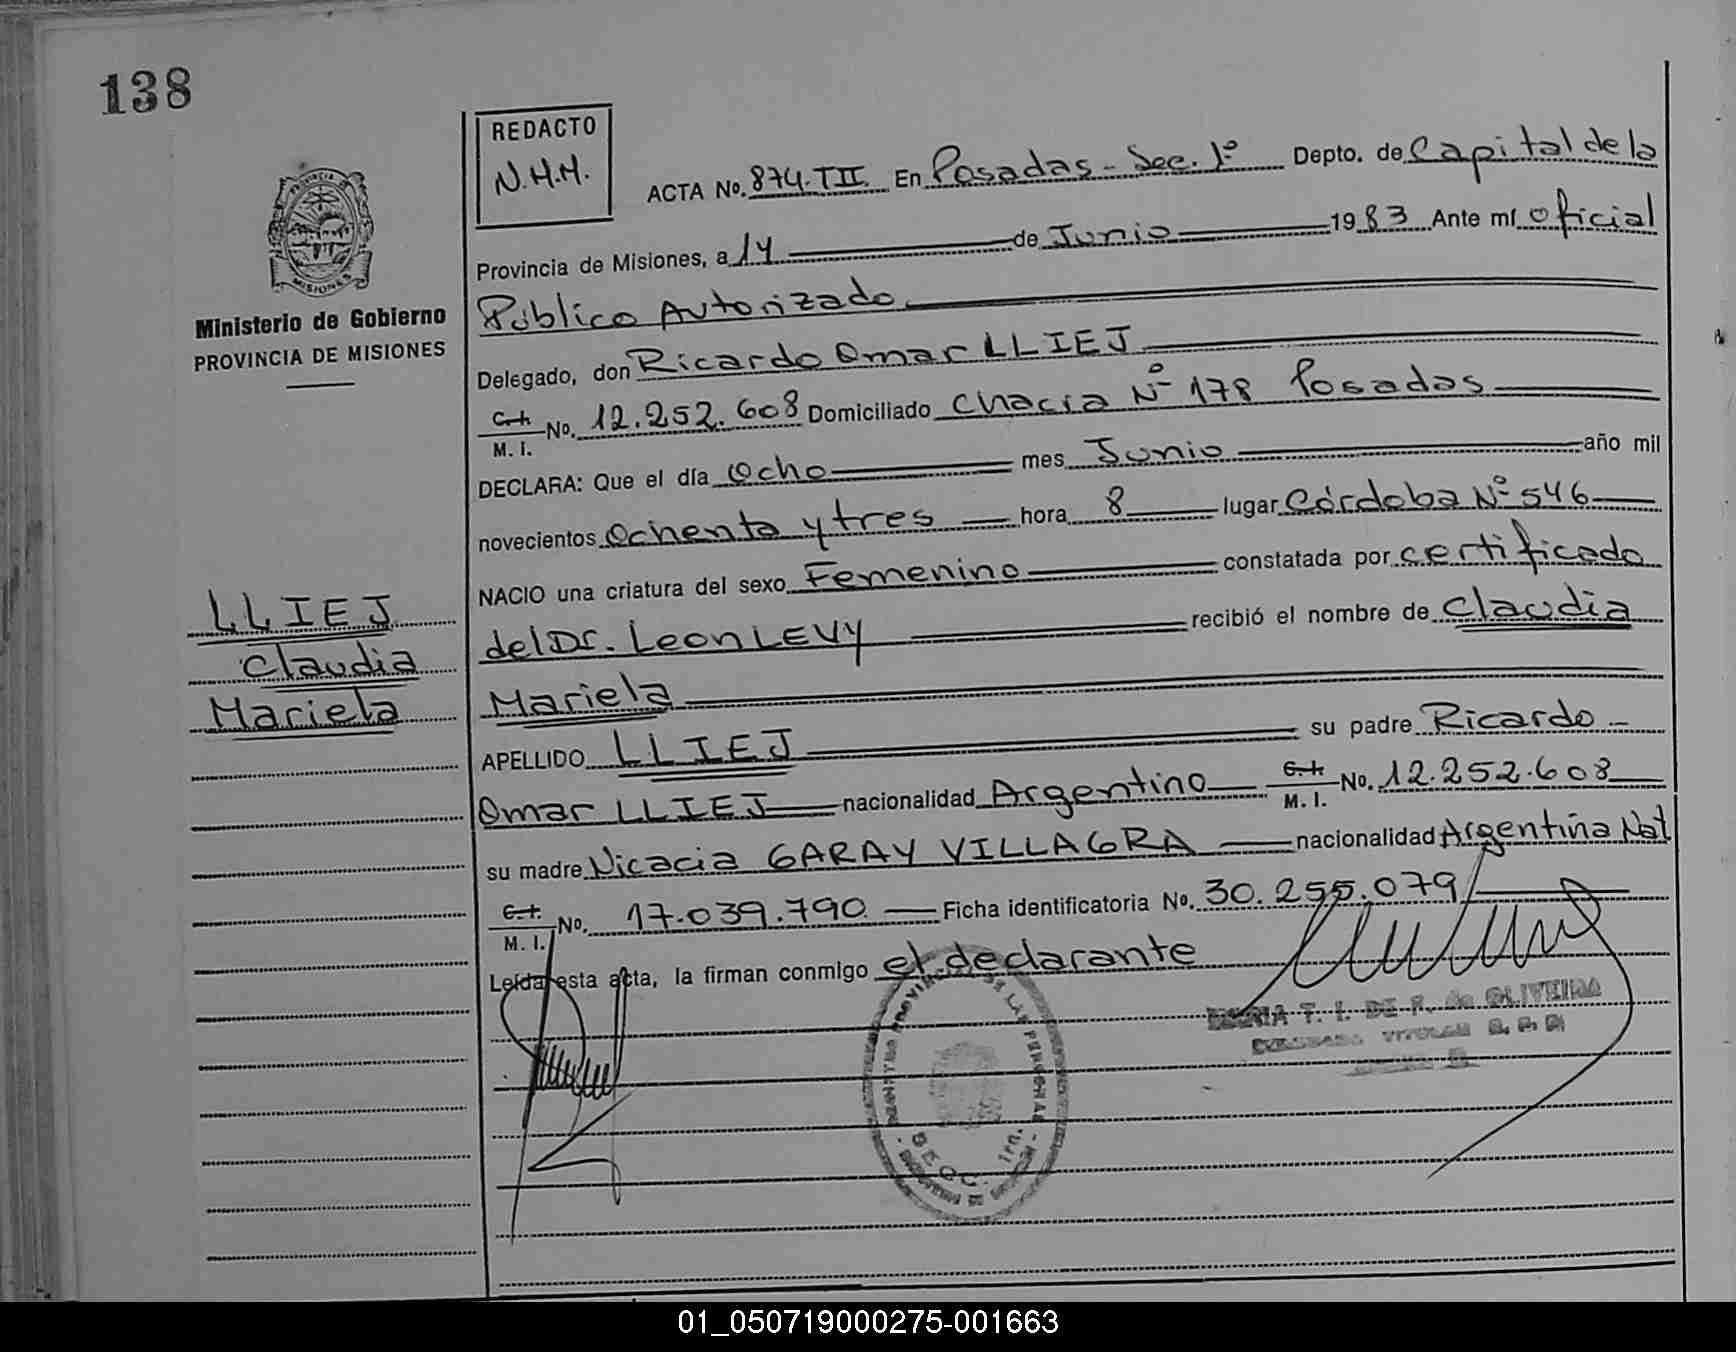 138
REDACTO
N.H.M.
ACTA No. 874.TII. En Posadas - Sec. 1º Depto. de Capital de la
Provincia de Misiones, a 14 de Junio 1983 Ante mí oficial
Público Autorizado
Delegado, don Ricardo Omar LLIEJ
C.I.
M. I. No. 12.252.608 Domiciliado Chacra Nº 178 Posadas
DECLARA: Que el día Ocho mes Junio año mil
novecientos Ochenta y tres hora 8 lugar Córdoba Nº 546
NACIO una criatura del sexo Femenino constatada por certificado
del Dr. Leon LEVY recibió el nombre de Claudia
Mariela
APELLIDO LLIEJ su padre Ricardo
Omar LLIEJ nacionalidad Argentino C.I. M. I. No. 12.252.608
su madre Nicacia GARAY VILLAGRA nacionalidad Argentina Nat
C.I.
M. I. No. 17.039.790 Ficha identificatoria No. 30.255.079
Leída esta acta, la firman conmigo el declarante
MISIONES
Ministerio de Gobierno
PROVINCIA DE MISIONES
LLIEJ
Claudia
Mariela
T. I. DE F. de OLIVEIRA
DE LAS PERSONAS
SECC. 1ra.
01_050719000275-001663